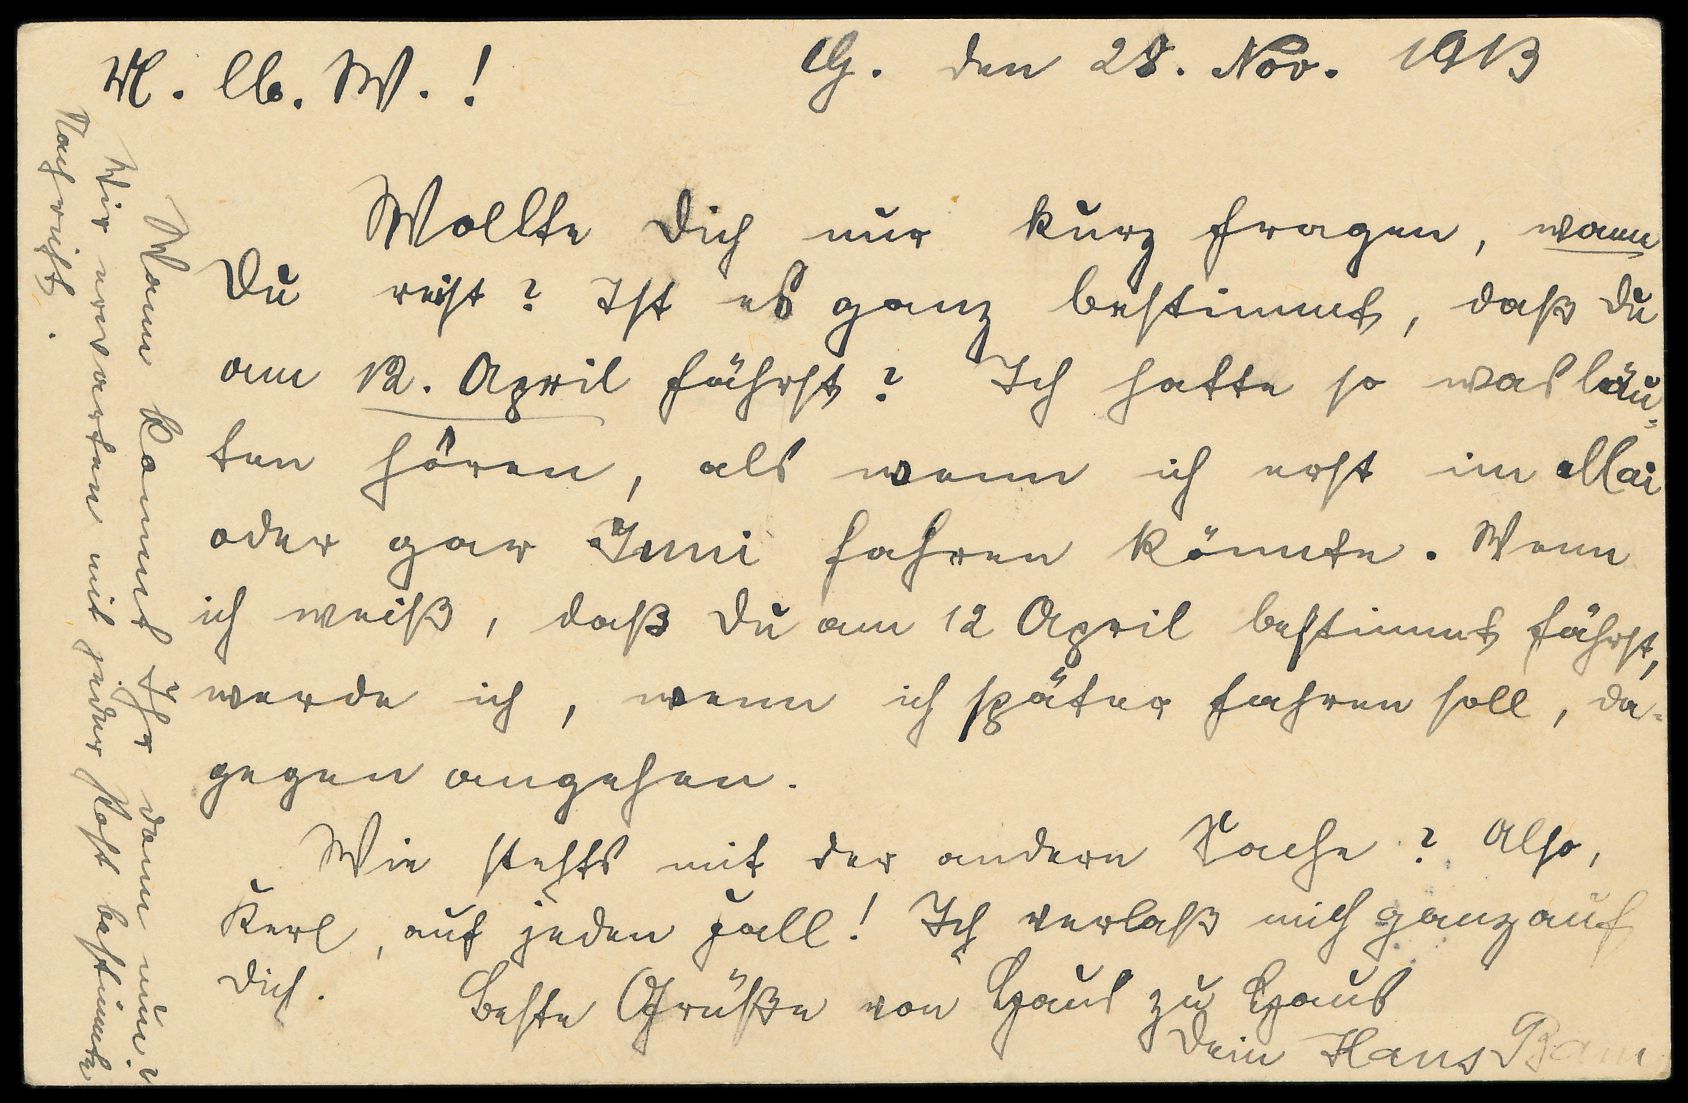 M. lb. W.!
G. den 28. Nov. 1913
Wollte Dich nur kurz fragen, wann
Du reist? Ist es ganz bestimmt, daß Du
am 12. April fährst? Ich hatte so was läu-
ten hören, als wenn ich erst im Mai
oder gar Juni fahren könnte. Wenn
ich weiß, daß Du am 12 April bestimmt fährst,
werde ich, wenn ich später fahren soll, da-
gegen angehen.
Wie stehts mit der andern Sache? Also,
Kerl, auf jeden Fall! Ich verlaß mich ganz auf
Dich. Beste Grüße von Haus zu Haus
Dein Hans
Wann kommt Ihr denn nun?
Wir erwarten mit jeder Post bestimmte
Nachricht.